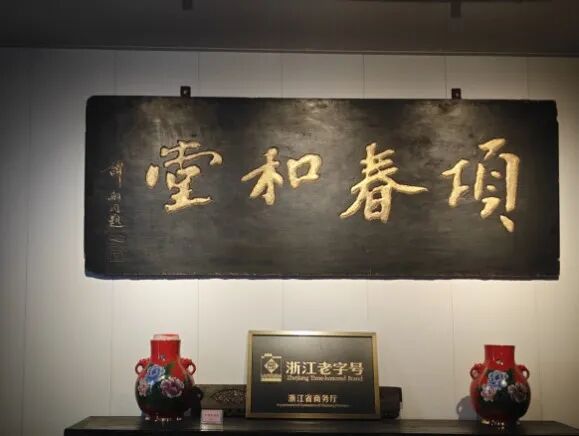 項春和堂
同題
浙江老字号
Zhejiang Time-honored Brand
浙江省商务厅